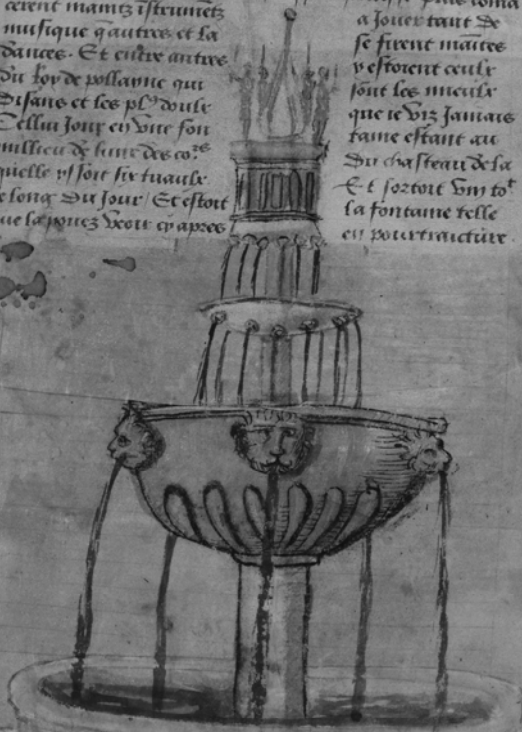 cerent maintz īstrumētz
musique q̄ autres et la
dances. Et entre autres
du Roy de pollayne qui
disans et les pl9 doulx
Cellui Jour en vne fon
millieu de lune des co.rs
quelle yssoit six tuaulx
le long Du Jour / Et estoit
ue la pouez veoir cy apres
a Jouer tant de
se firent maītes
y estoient ceulx
sont les mieulx
que ie viz Jamais
taine estant au
Du chasteau de la
Et sortoit vin to.t
la fontaine telle
en pourtraicture.